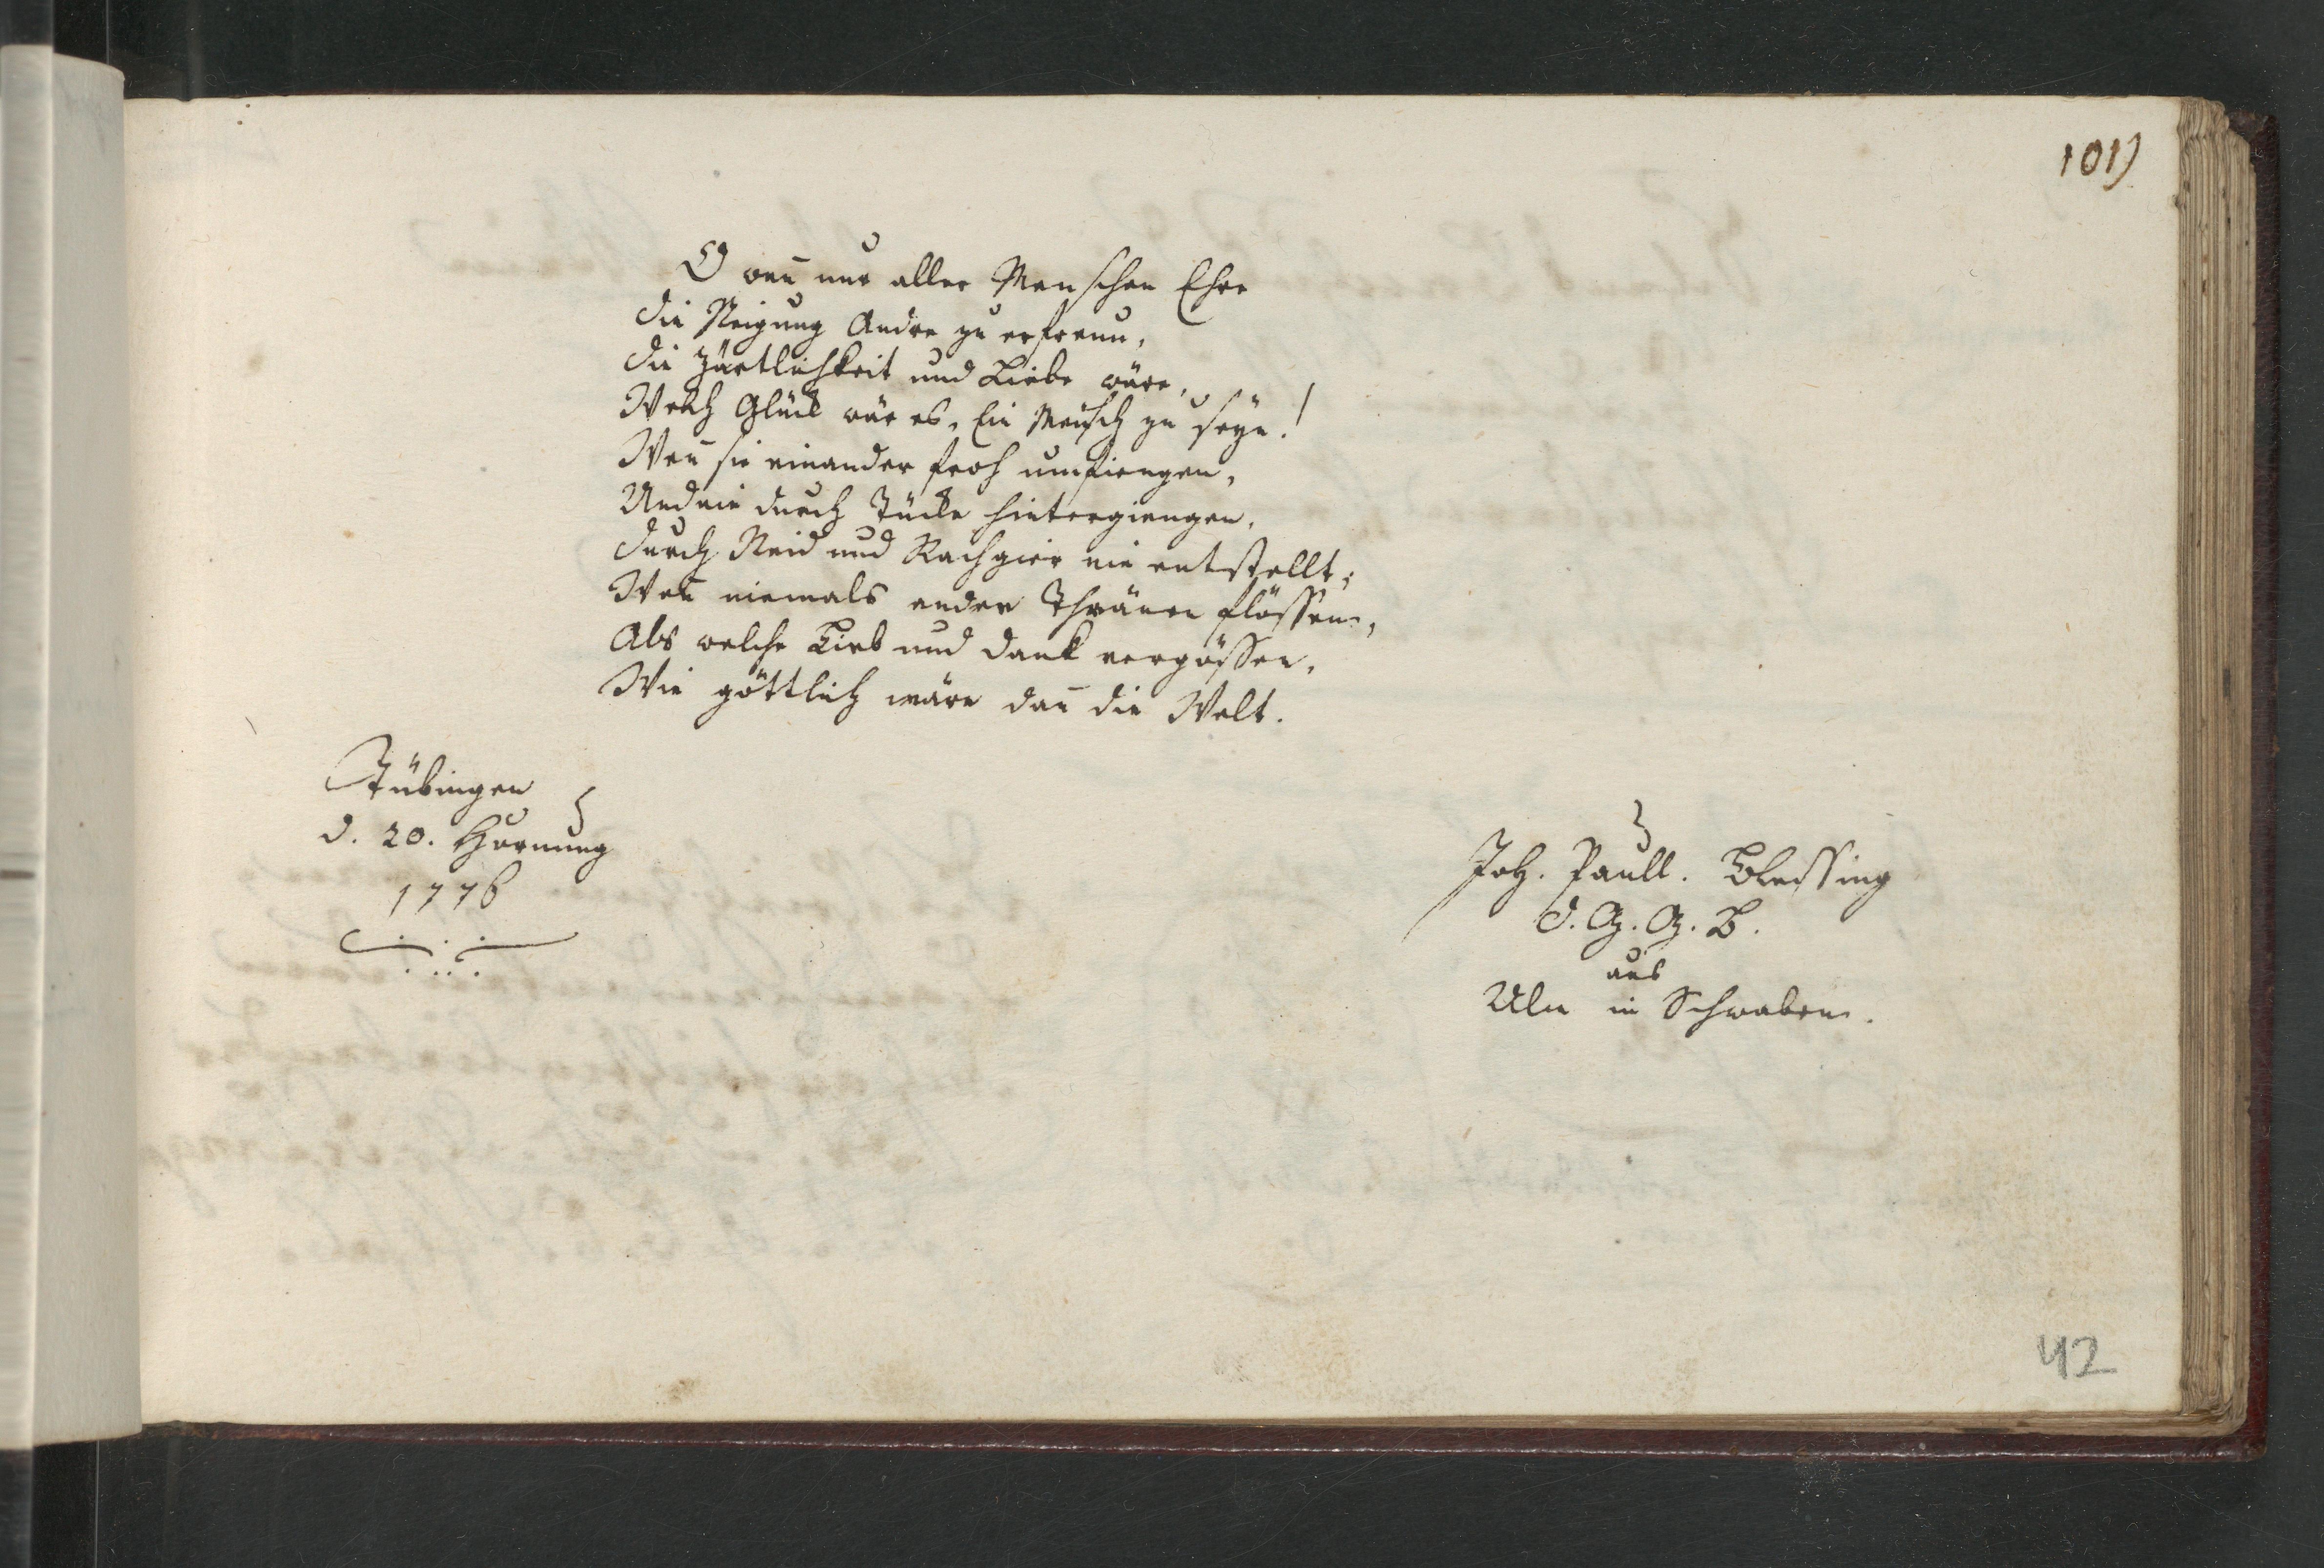 101)
O weñ nur aller Menschen Ehre
die Neigung Andre zu erfreun,
die Zärtlichkeit und Liebe wäre,
Welch Glück wär es, Ein Mensch zu seyn!
Weñ sie einander froh umfiengen,
Und nie durch Tücke hintergiengen,
durch Neid und Rachgier nie entstellt;
Weñ niemals andre Thränen flössen,
Als welche Lieb und Dank vergössen,
Wie göttlich wäre dañ die Welt.
Tübingen
d. 20. Hornung
1776
Joh. Paull. Blessing
d. G. G. B.
aus
Ulm in Schwaben.
42